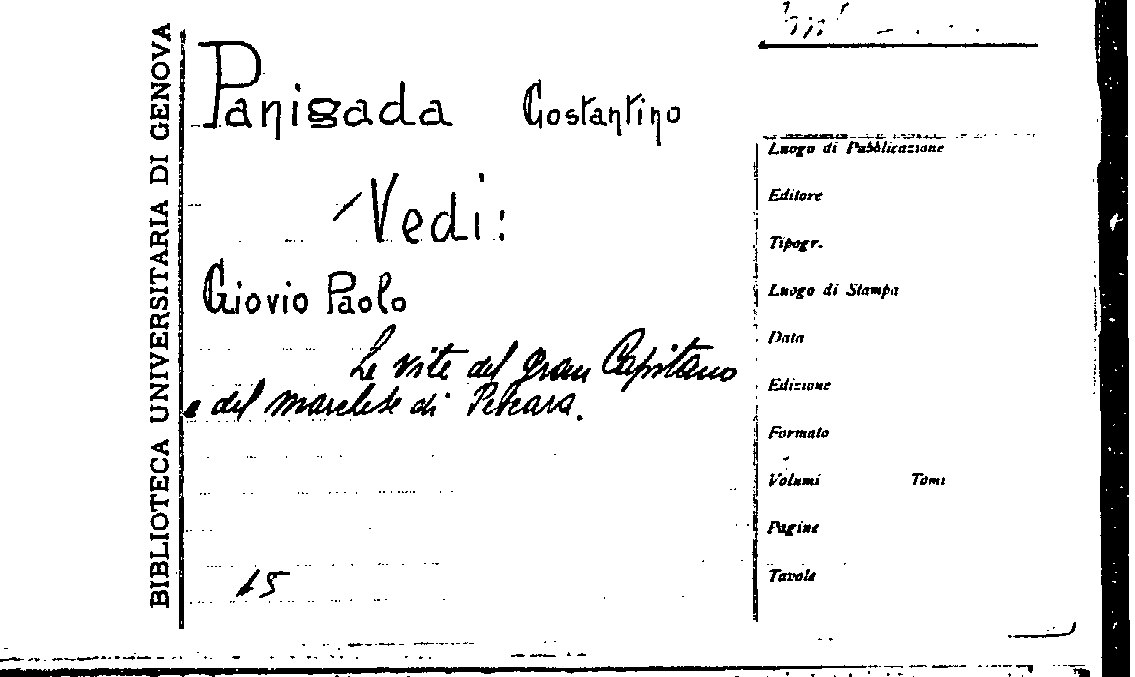 BIBLIOTECA UNIVERSITARIA DI GENOVA
Panigada Costantino
Vedi:
Giovio Paolo
Le vite del gran Capitano
e del marchese di Pescara.
15
Luogo di Pubblicazione
Editore
Tipogr.
Luogo di Stampa
Data
Edizione
Formato
Volumi Tomi
Pagine
Tavole